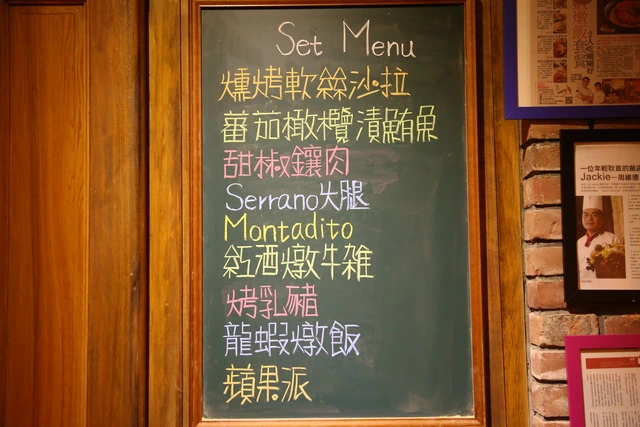 Set Menu
燻烤軟絲沙拉
蕃茄橄欖漬鮪魚
甜椒鑲肉
Serrano火腿
Montadito
紅酒燉牛雜
烤乳豬
龍蝦燉飯
蘋果派
一位年輕耿直的飯店
Jackie—周維德